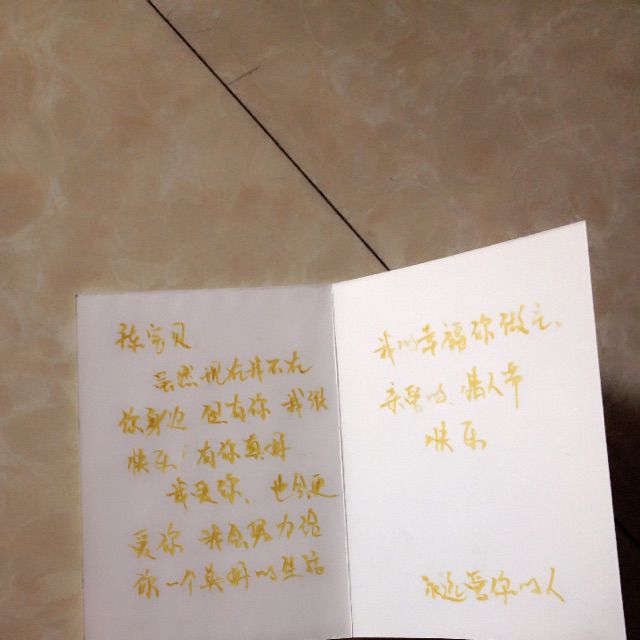 张宝贝
虽然现在我不在
你身边 但有你 我很
快乐 有你真好
我爱你、也会更
爱你 我会努力给
你一个美好的生活
我的幸福你做主、
亲爱的、情人节
快乐
永远爱你的人